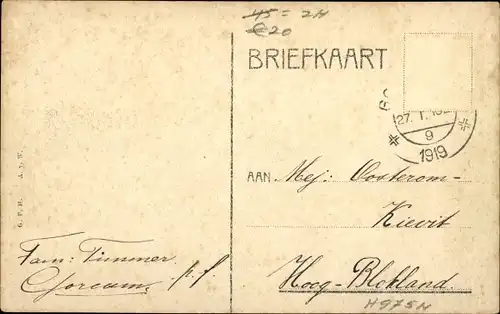 45 = 2H
€20
BRIEFKAART
27. 1. 19
9
1919
AAN Mej: Oosterom-
Kievit
Hoog-Blokland.
H975H
Fam: Timmer
Gorcum. p.f.
G. F. H. A. v. W.